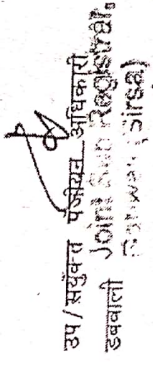 उप/सयुंक्त पंजीयन अधिकारी
डबवाली Joint Sub Registrar,
(Sirsa)